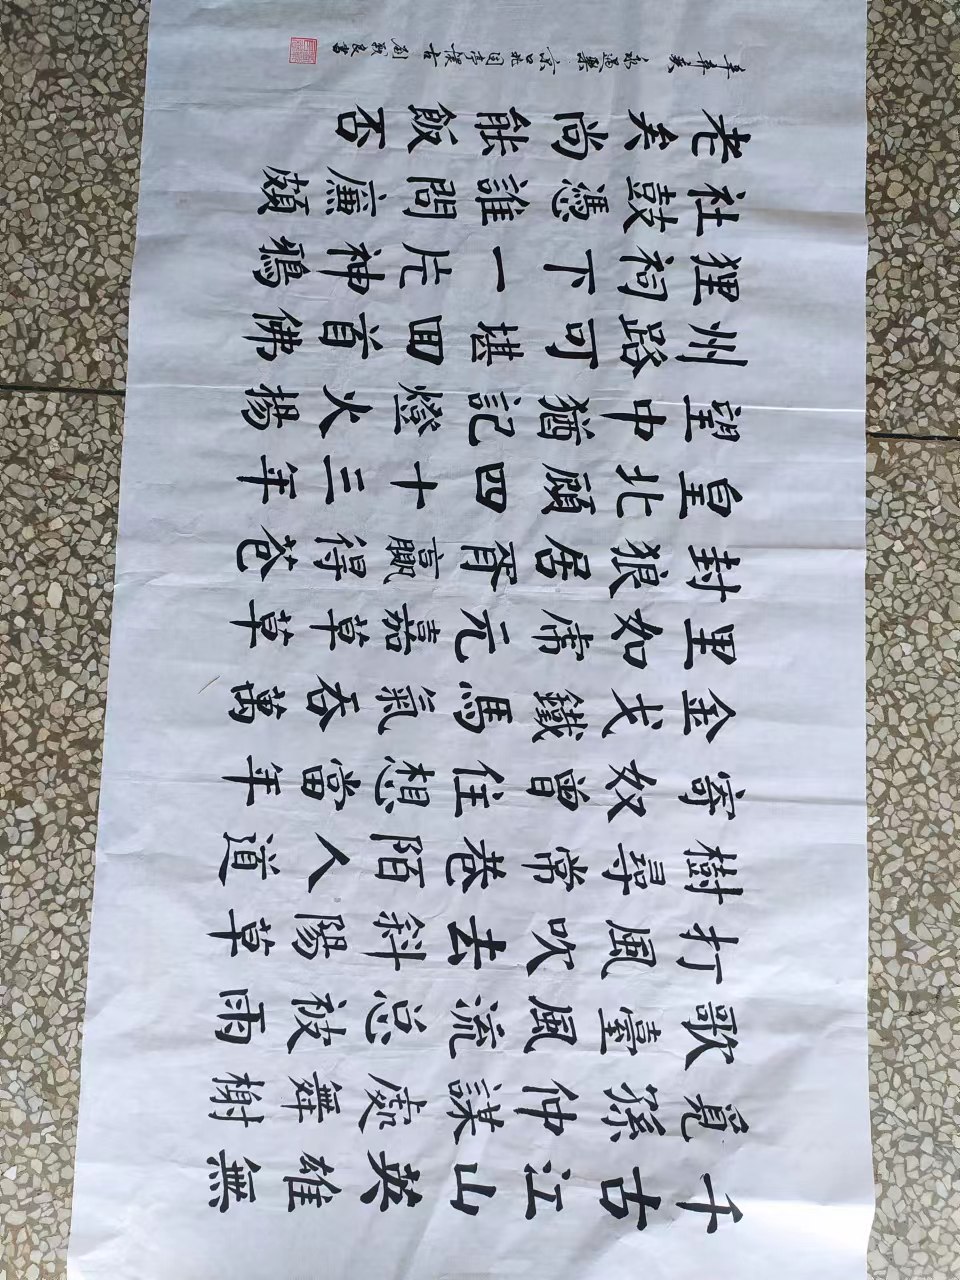 千古江山英雄無
覓孫仲謀處舞榭
歌臺風流总被雨
打風吹去斜陽草
樹尋常巷陌人道
寄奴曾住想當年
金戈鐵馬氣吞萬
里如虎元嘉草草
封狼居胥贏得苍
皇北顧四十三年
望中猶記燈火揚
州路可堪回首佛
狸祠下一片神鴉
社鼓憑誰問廉頗
老矣尚能飯否
辛弃疾 永遇樂 京口北固亭懷古 書